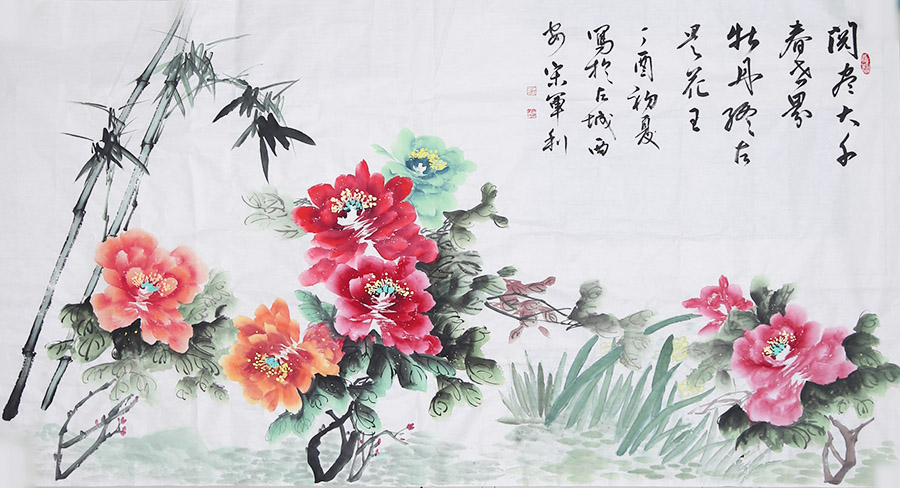 阅尽大千
春世界
牡丹终古
是花王
丁酉初夏
寫於古城西
安宋軍利